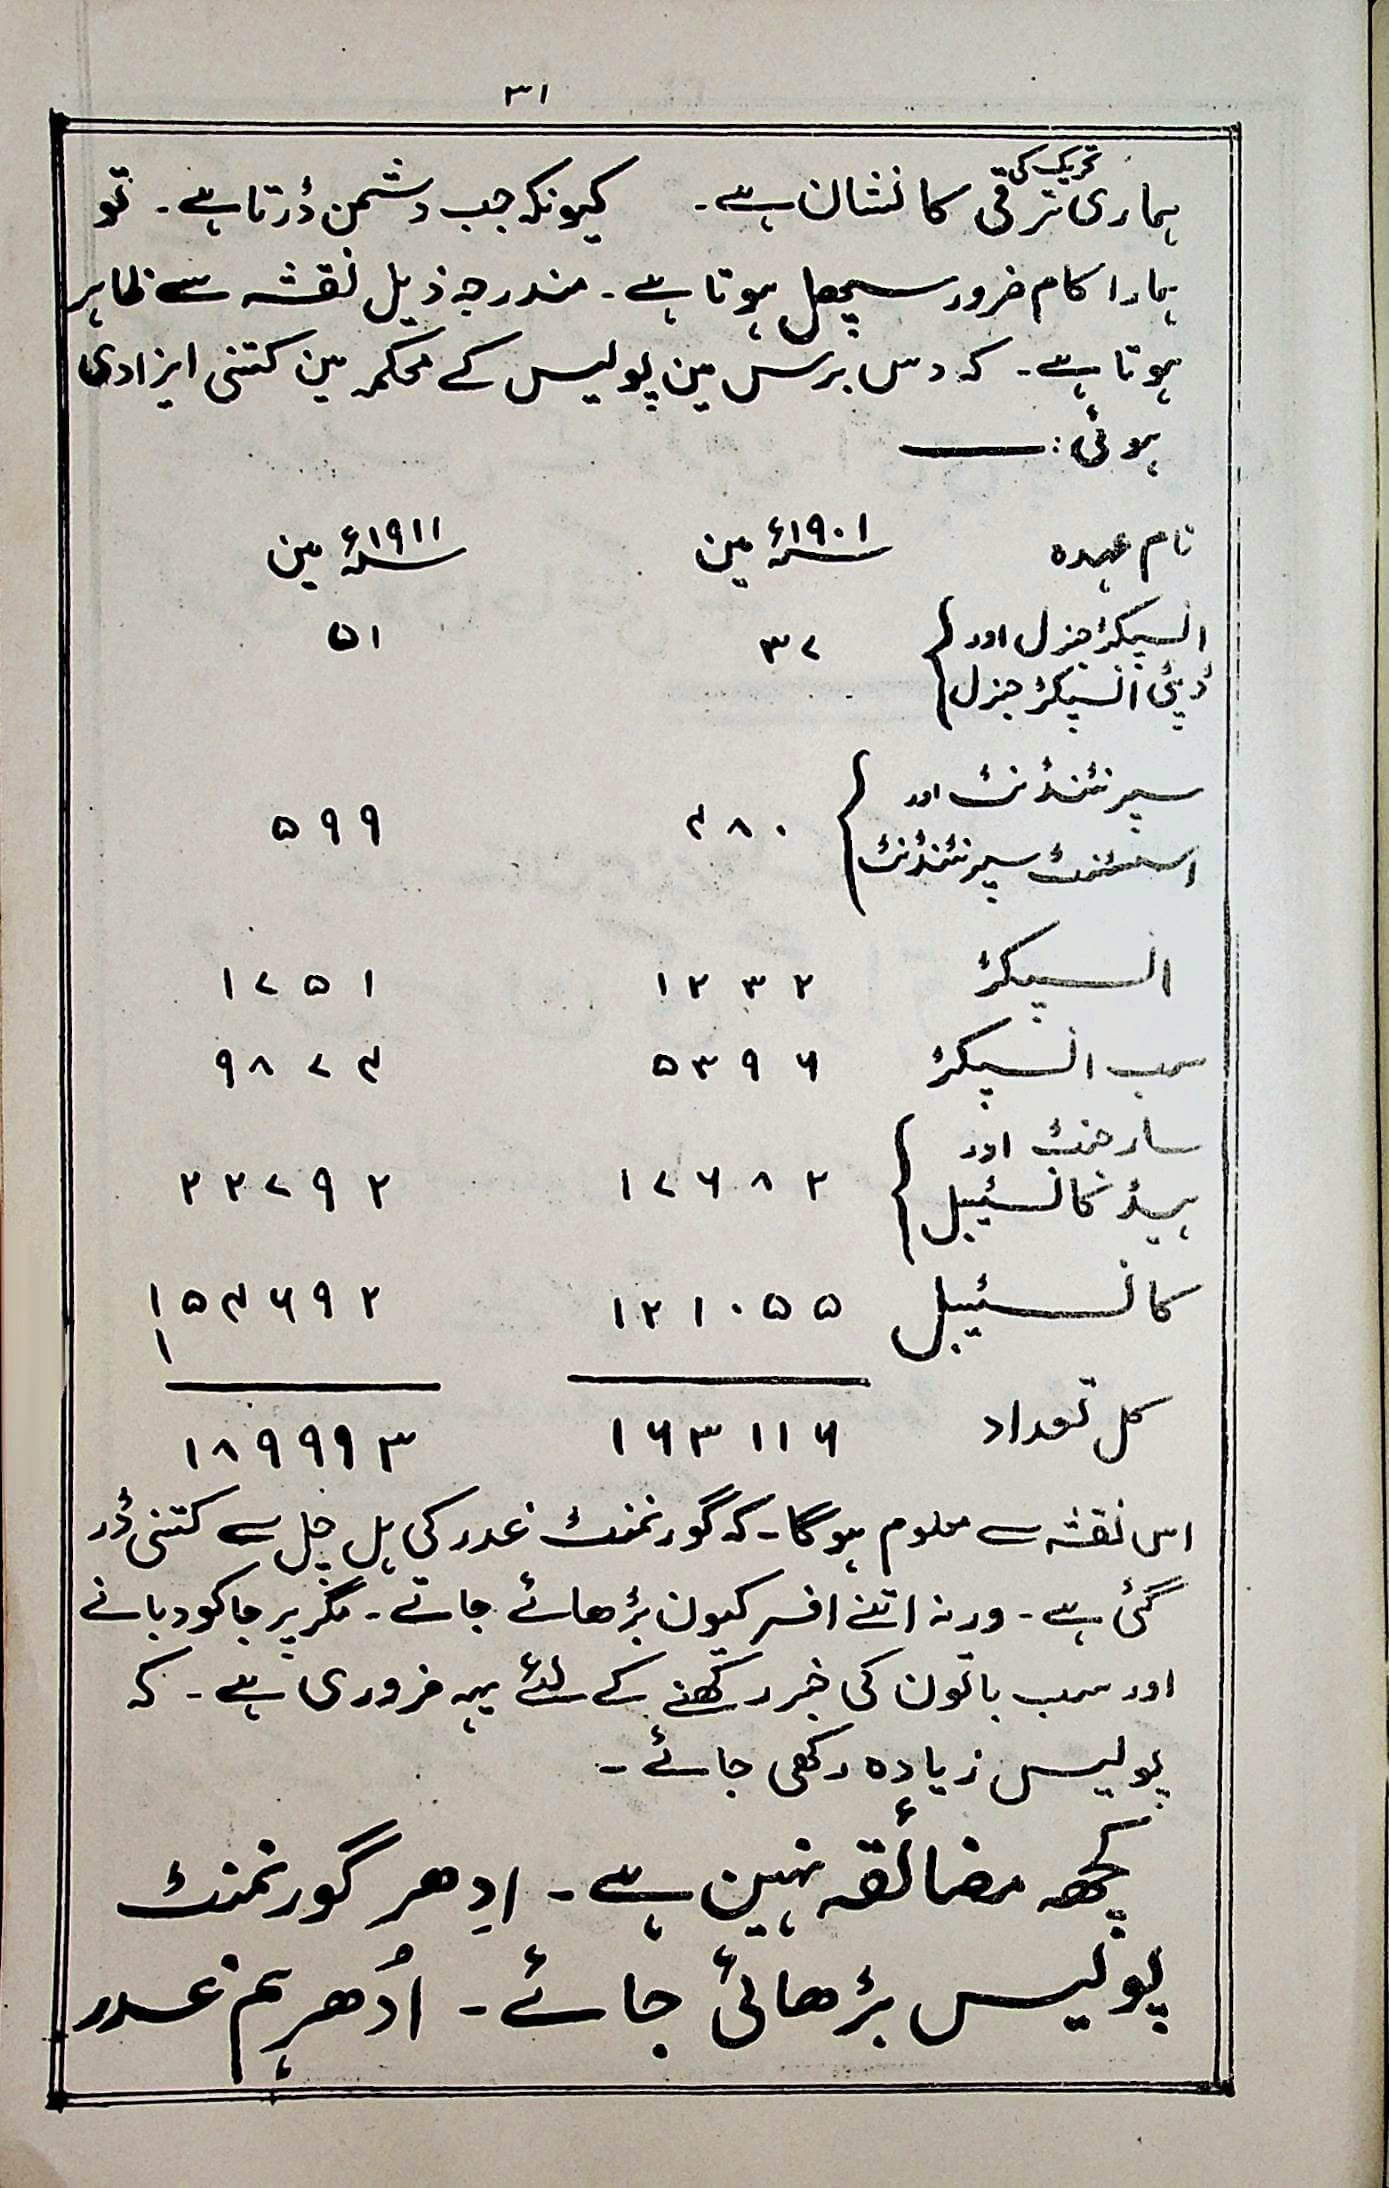 ۳۱
تحریک کی
ہماری ترقی کا نشان ہے ۔ کیونکہ جب دشمن ڈرتا ہے ۔ تو
ہمارا کام ضرور سپھل ہوتا ہے ۔ مندرجہ ذیل نقشہ سے ظاہر
ہوتا ہے ۔ کہ دس برس مین پولیس کے محکمہ مین کتنی ایزادی
ہوئی : ــــــ
نام عہدہ ۱۹۰۱ء مین ۱۹۱۱ء مین
انسپکٹر جنرل اور ۳۷ ۵۱
ڈپٹی انسپکٹر جنرل
سپرنٹنڈنٹ اور ۴۸۰ ۵۹۹
اسسٹنٹ سپرنٹنڈنٹ
انسپکٹر ۱۲۳۲ ۱۷۵۱
سب انسپکٹر ۵۳۹۶ ۹۸۷۴
سارجنٹ اور
ہیڈ کانسٹیبل ۱۷۶۸۲ ۲۲۷۹۲
کانسٹیبل ۱۲۱۰۵۵ ۱۵۴۶۹۲
۱
کل تعداد ۱۶۳۱۱۶ ۱۸۹۹۹۳
اس نقشہ سے معلوم ہوگا ۔ کہ گورنمنٹ غدر کی ہل چل سے کتنی ڈر
گئی ہے ۔ ورنہ اتنے افسر کیون بڑھائے جاتے ۔ مگر پرجا کو دبانے
اور سب باتون کی خبر رکھنے کے لئے یہہ ضروری ہے ۔ کہ
پولیس زیادہ رکھی جائے ۔
کچھ مضائقہ نہین ہے ۔ اِدھر گورنمنٹ
پولیس بڑھائی جائے ۔ اُدھر ہم غدر